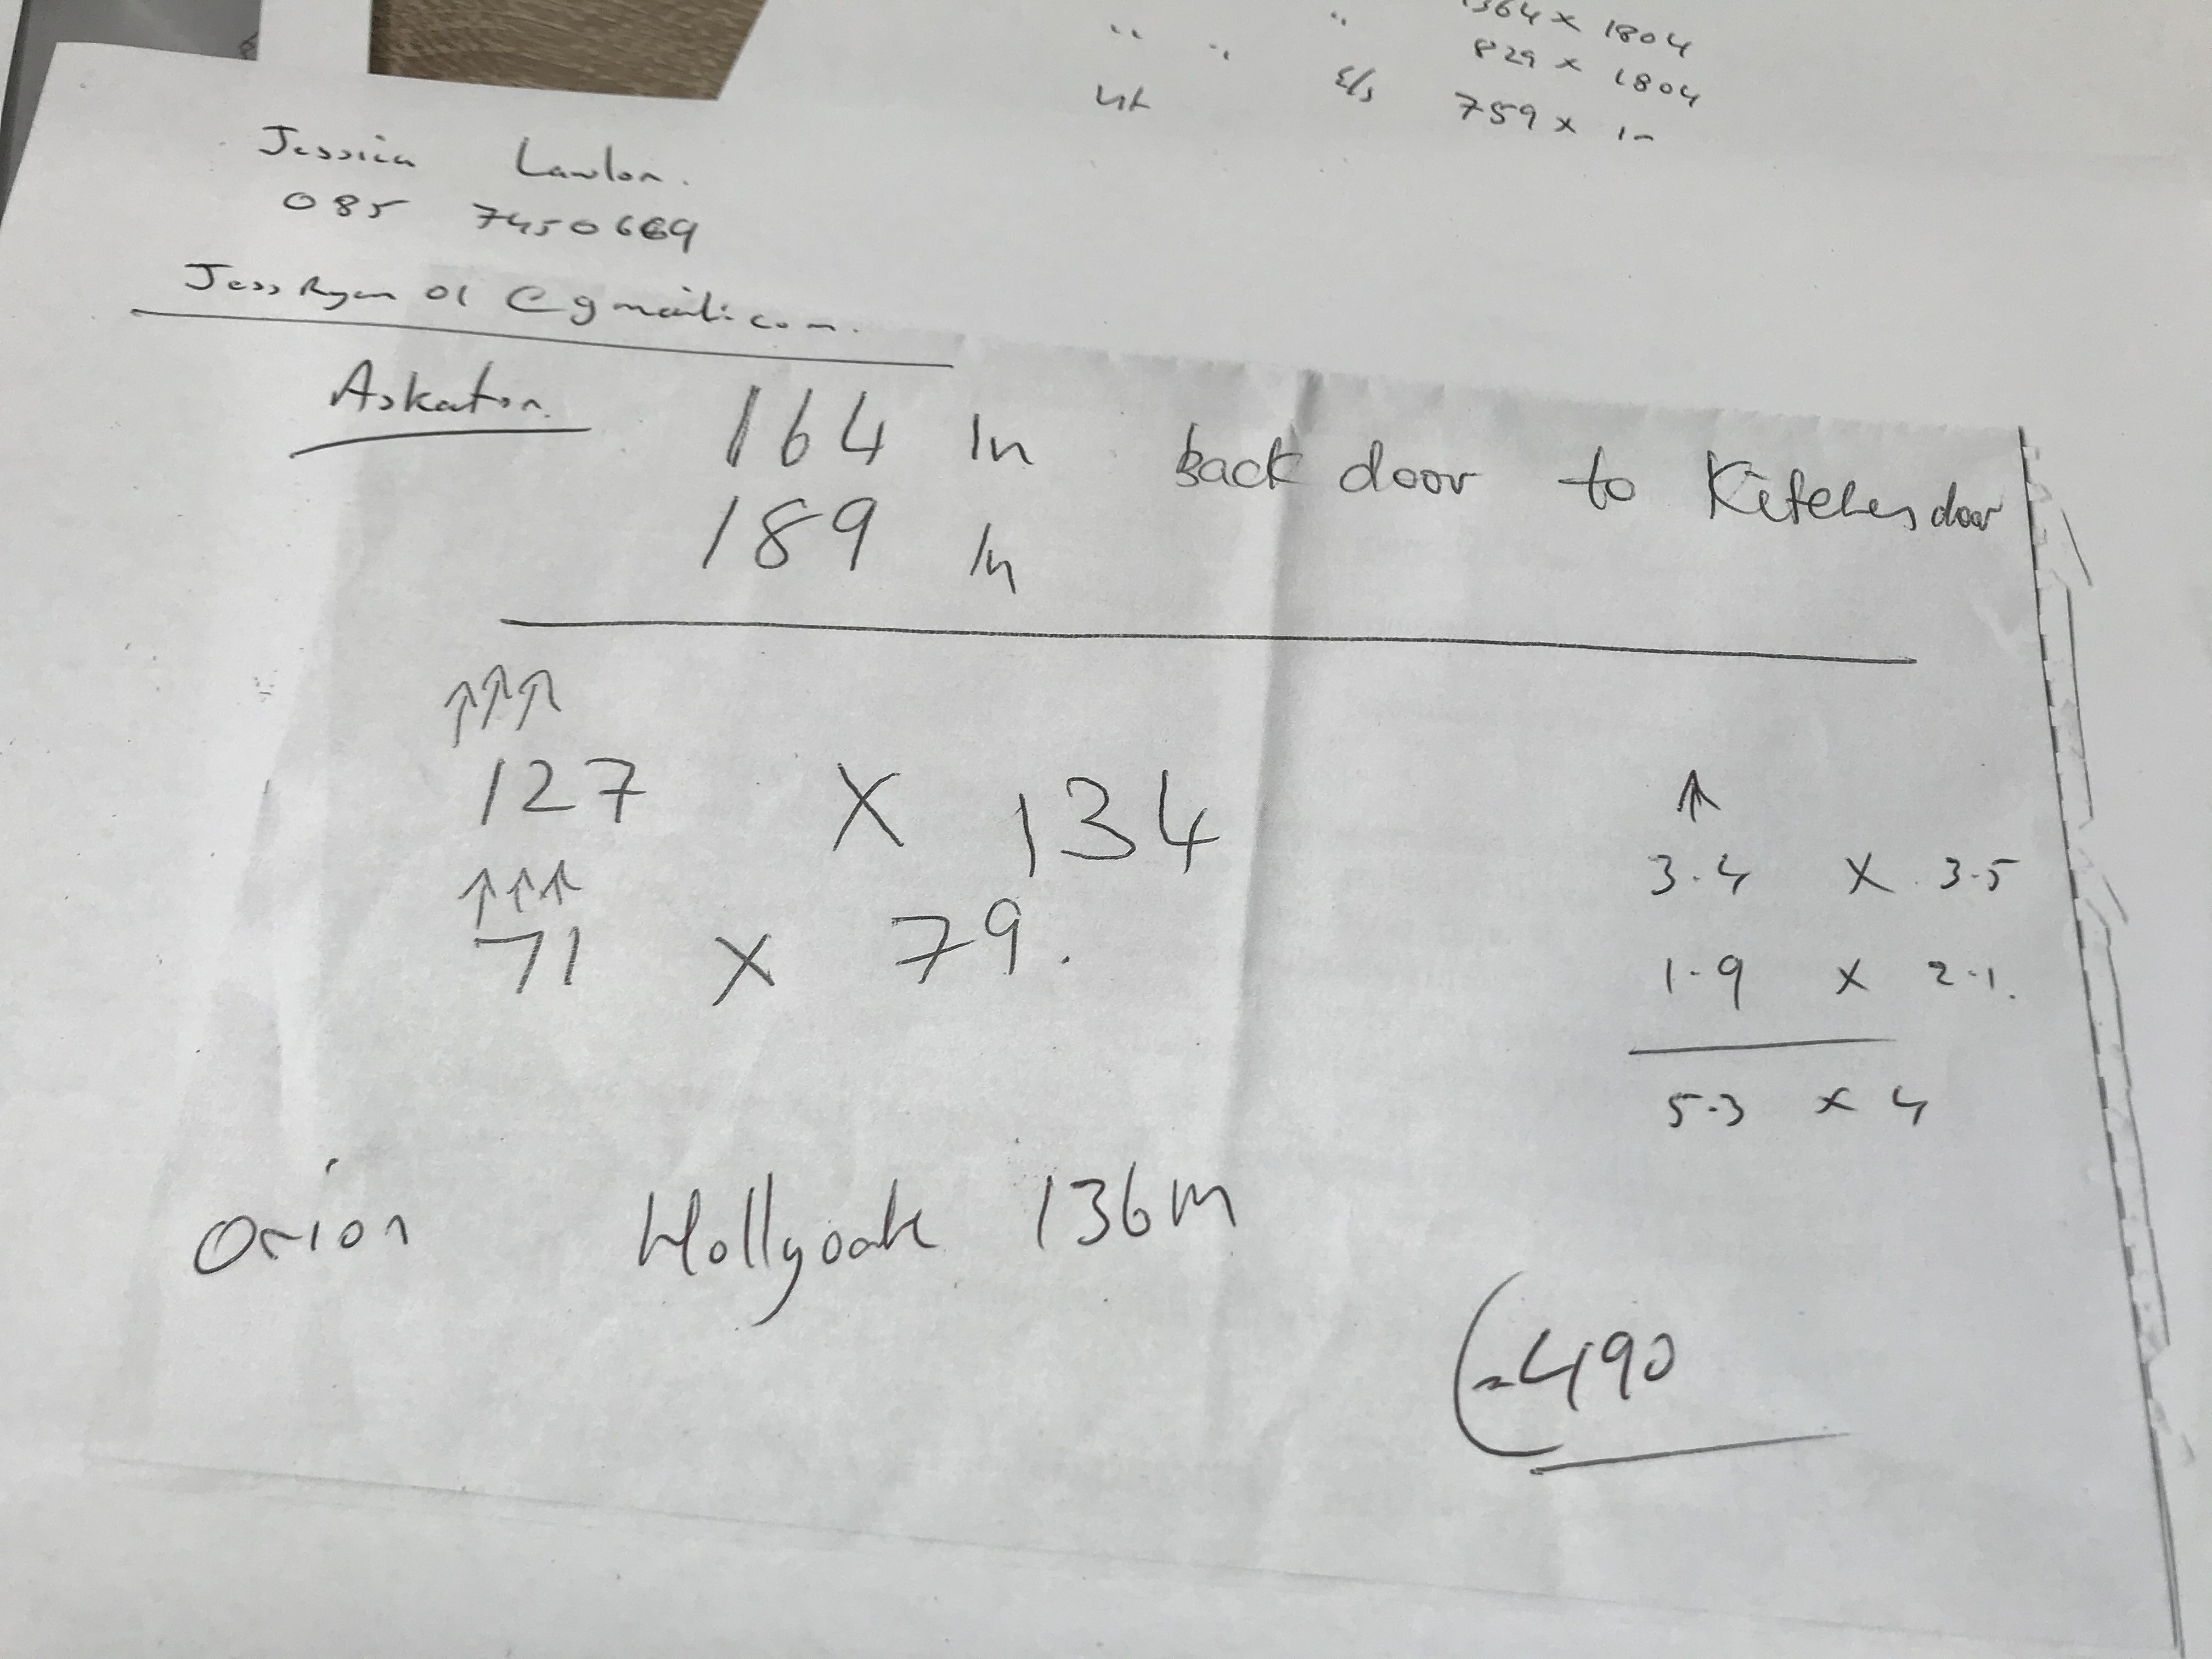 1364 x 1804
829 x 1804
759 x
Jessica Lawlor.
085 7450669
JessRyan01@gmail.com.
Askeaton.
164 In back door to Kitchen door
189 In
127 X 134
3.4 X 3.5
71 x 79.
1.9 x 2.1.
5.3 x 4
Orion Hollyoak 136m
=490